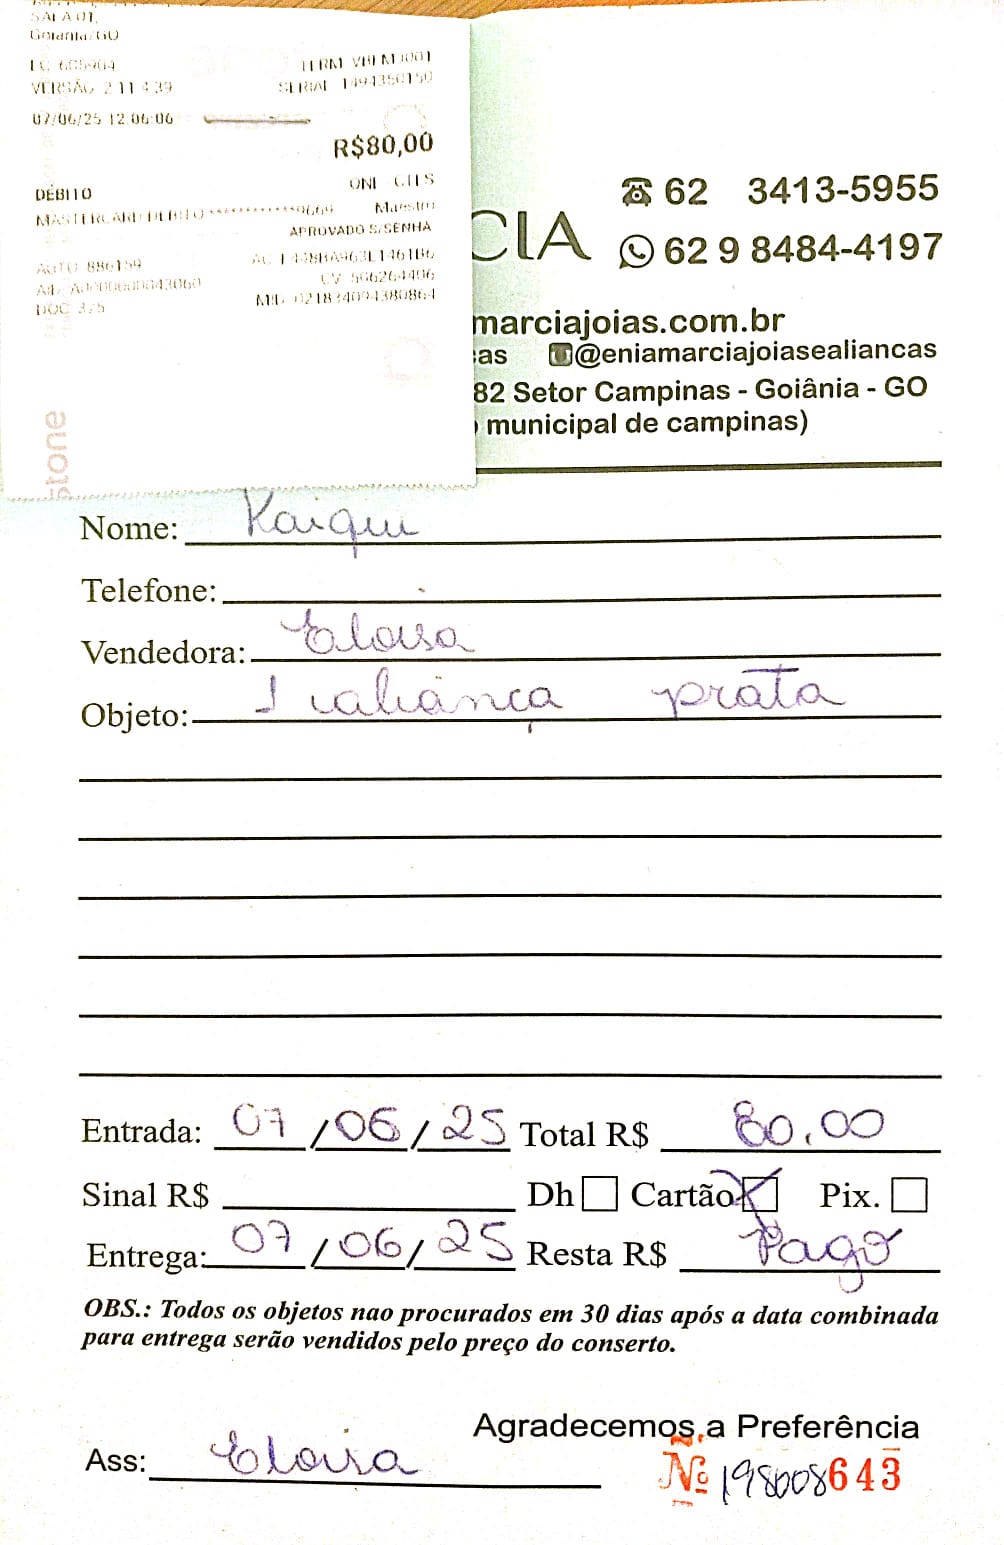 SALA 01,
Goiania/GO
VERSÃO 2.11.4.39
07/06/25 12:06:06
R$80,00
DÉBITO
MASTERCARD DEBITO ************9669 Maestro
APROVADO S/SENHA
AUTO 886159
DOC 375
Stone
CIA
62 3413-5955
62 9 8484-4197
marciajoias.com.br
as @eniamarciajoiasealiancas
82 Setor Campinas - Goiânia - GO
municipal de campinas)
Nome: Kaiqui
Telefone:
Vendedora: Eloisa
Objeto: 1 aliança prata
Entrada: 07/06/25 Total R$ 80,00
Sinal R$ Dh Cartão X Pix.
Entrega: 07/06/25 Resta R$ Pago
OBS.: Todos os objetos nao procurados em 30 dias após a data combinada
para entrega serão vendidos pelo preço do conserto.
Agradecemos a Preferência
Ass: Eloisa
Nº 198008643